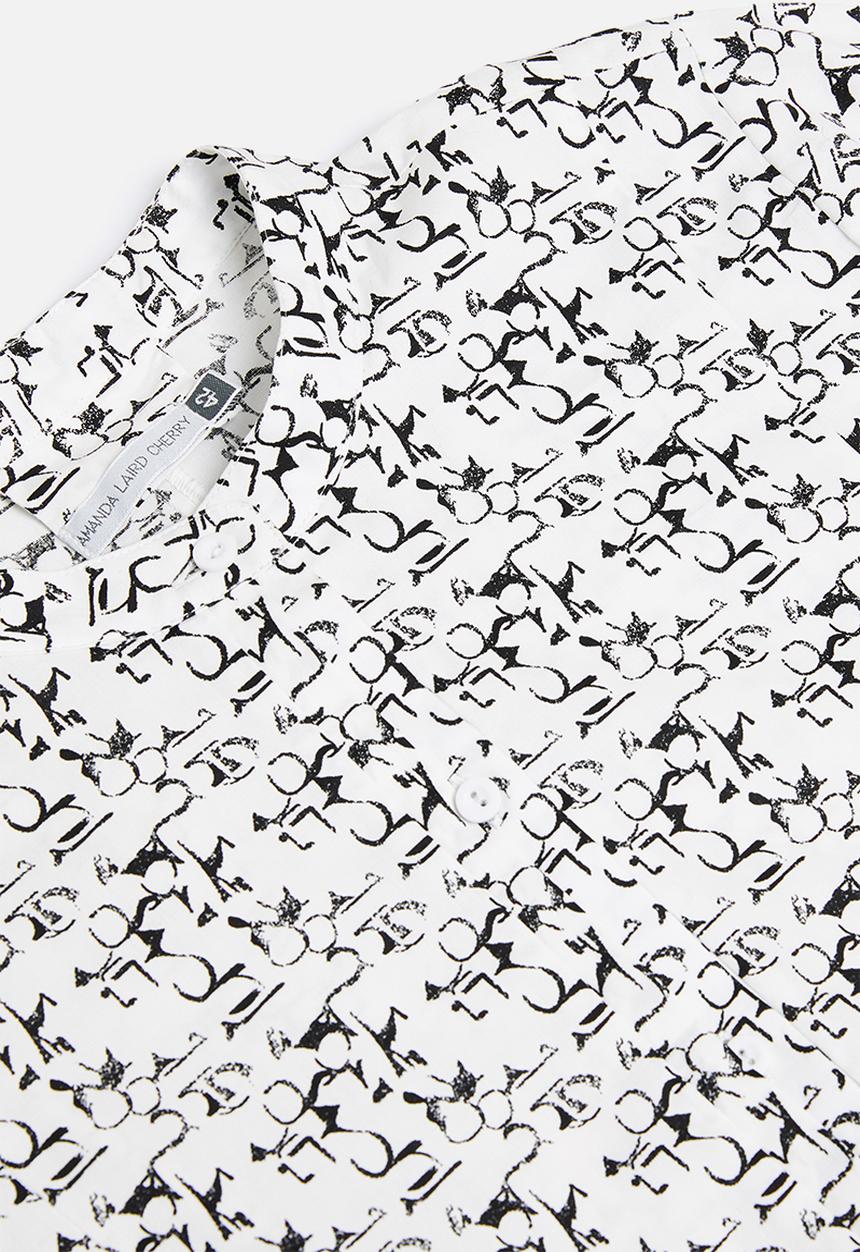 42
AMANDA LAIRD CHERRY